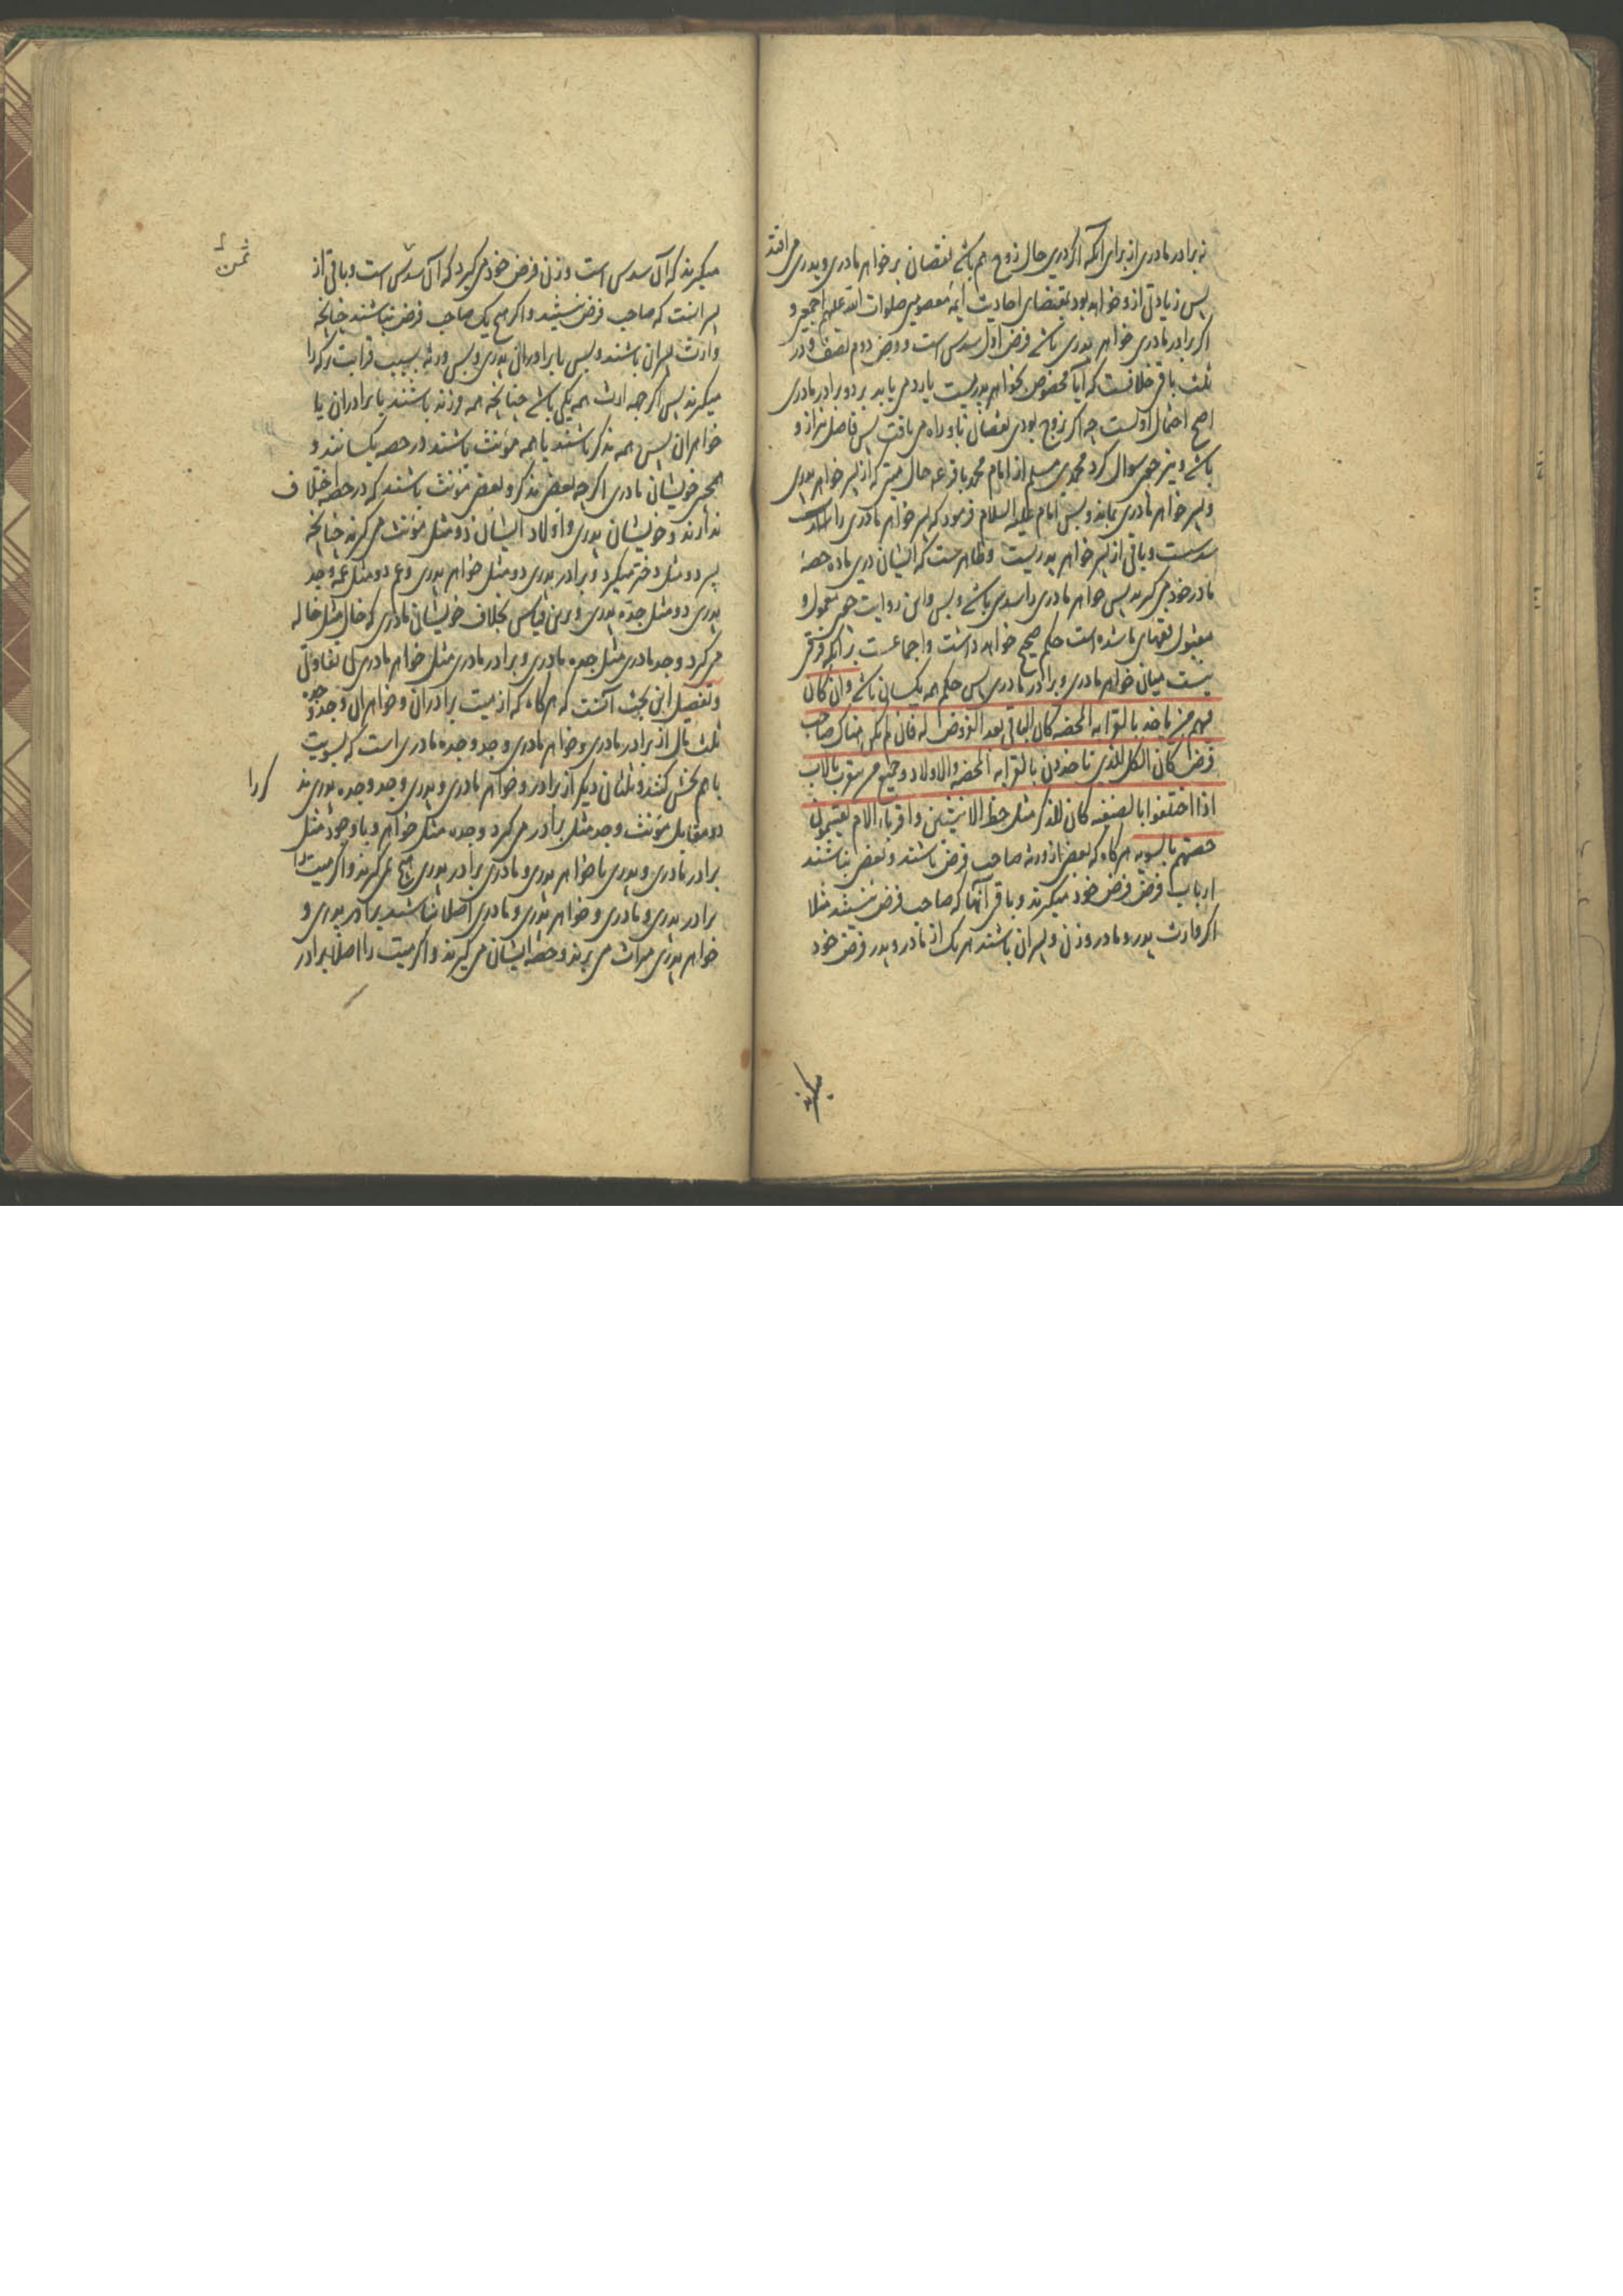 نه برادر مادری از برای آنکه اگر درین حال زوج هم باشد نقصان بر خواهر مادری و پدری می افتد
پس زیادتی از و خواهد بود بمقتضای احادیث ایمهٔ معصومین صلوات الله علیهم اجمعین و
اگر برادر مادری خواهر پدری باشد فرض اول سدس است و فرض دوم نصف و در
ثلث باقی خلافست که آیا مخصوص بخواهر پدریست یا رد می یابد بر دو برادر مادری
اصح احتمال اولست چه اگر زوج بودی نقصان باو راه می یافت پس فاضل نیز از و
باشد و نیز چون سوال کرد محمد بن مسلم از امام محمد باقر عه حال میتی که از پسر خواهر پدری
و پسر خواهر مادری بماند و بس امام علیه السلام فرمود که پسر خواهر مادری را
سدست و باقی از پسر خواهر پدریست و ظاهرست که ایشان درین ماده حصهٔ
مادر خود می گیرند پس خواهر مادری را سدس باشد و بس و این روایت چون معمول و
مقبول فقهای ما شده است حکم صحیح خواهد داشت و اجماعست بر آنکه فرقی
نیست میان خواهر مادری و برادر مادری پس حکم همه یکسان باشد وان کان
فیهم من یاخذ بالقرابه المحضه کان الباقی بعد الفروض له فان لم یکن هناک صاحب
فرض کان الکل للذین یاخذون بالقرابه المحضه والاولاد و جمیع من یتقرب بالاب
اذا اختلفوا بالصنفیه کان للذکر مثل حظ الانثیین و اقرباء الام یقتسمون
حصتهم بالسویه هرگاه که بعض از ورثه صاحب فرض باشند و بعض نباشند
ارباب فرض فرض خود میگیرند و باقی آنها که صاحب فرض نیستند مثلا
اگر وارث پدر و مادر و زن و پسران باشند هر یک از مادر و پدر فرض خود
میگیرند
میگیرند که آن سدس است و زن فرض خود می گیرد که آن سدس است و باقی از
ثمن
پسرانست که صاحب فرض نیستند و اگر هیچ یک صاحب فرض نباشند چنانچه
وارث پسران باشند و بس یا برادران پدری و بس ورثه بسبب قرابت ترکه را
میگیرند پس اگر جهه ارث همه یکی باشد چنانچه همه فرزند باشند یا برادران یا
خواهران پس همه مذکر باشند یا همه مؤنث باشند در حصه یکسانند و
همچنین خویشان مادری اگر چه بعض مذکر و بعض مؤنث باشند که در حصه اختلاف
ندارند و خویشان پدری و اولاد ایشان دو مثل مؤنث می گیرند چنانچه
پسر دو مثل دختر میگیرد و برادر پدری دو مثل خواهر پدری و عم دو مثل عمه و جد
پدری دو مثل جده پدری و برین قیاس بخلاف خویشان مادری که خال مثل خاله
می گیرد و جد مادری مثل جده مادری و برادر مادری مثل خواهر مادری بی تفاوتی
و تفصیل این بحث آنست که هرگاه که از میت برادران و خواهران و جد و جده
ثلث مال از برادر مادری و خواهر مادری و جد و جده مادری است که بسویت
باهم بخش کنند و ثلثان دیگر از برادر و خواهر مادری و پدری و جد و جده پدری
دو مقابل مؤنث و جد مثل برادر می گیرد و جده مثل خواهر و با وجود مثل
برادر مادری و پدری یا خواهر پدری و مادری برادر پدری هیچ نمی گیرند و اگر میت را
برادر پدری و مادری و خواهر پدری و مادری اصلا نباشند برادر پدری و
خواهر پدری میراث می برند و حصه ایشان می گیرند و اگر میت را اصلا برادر